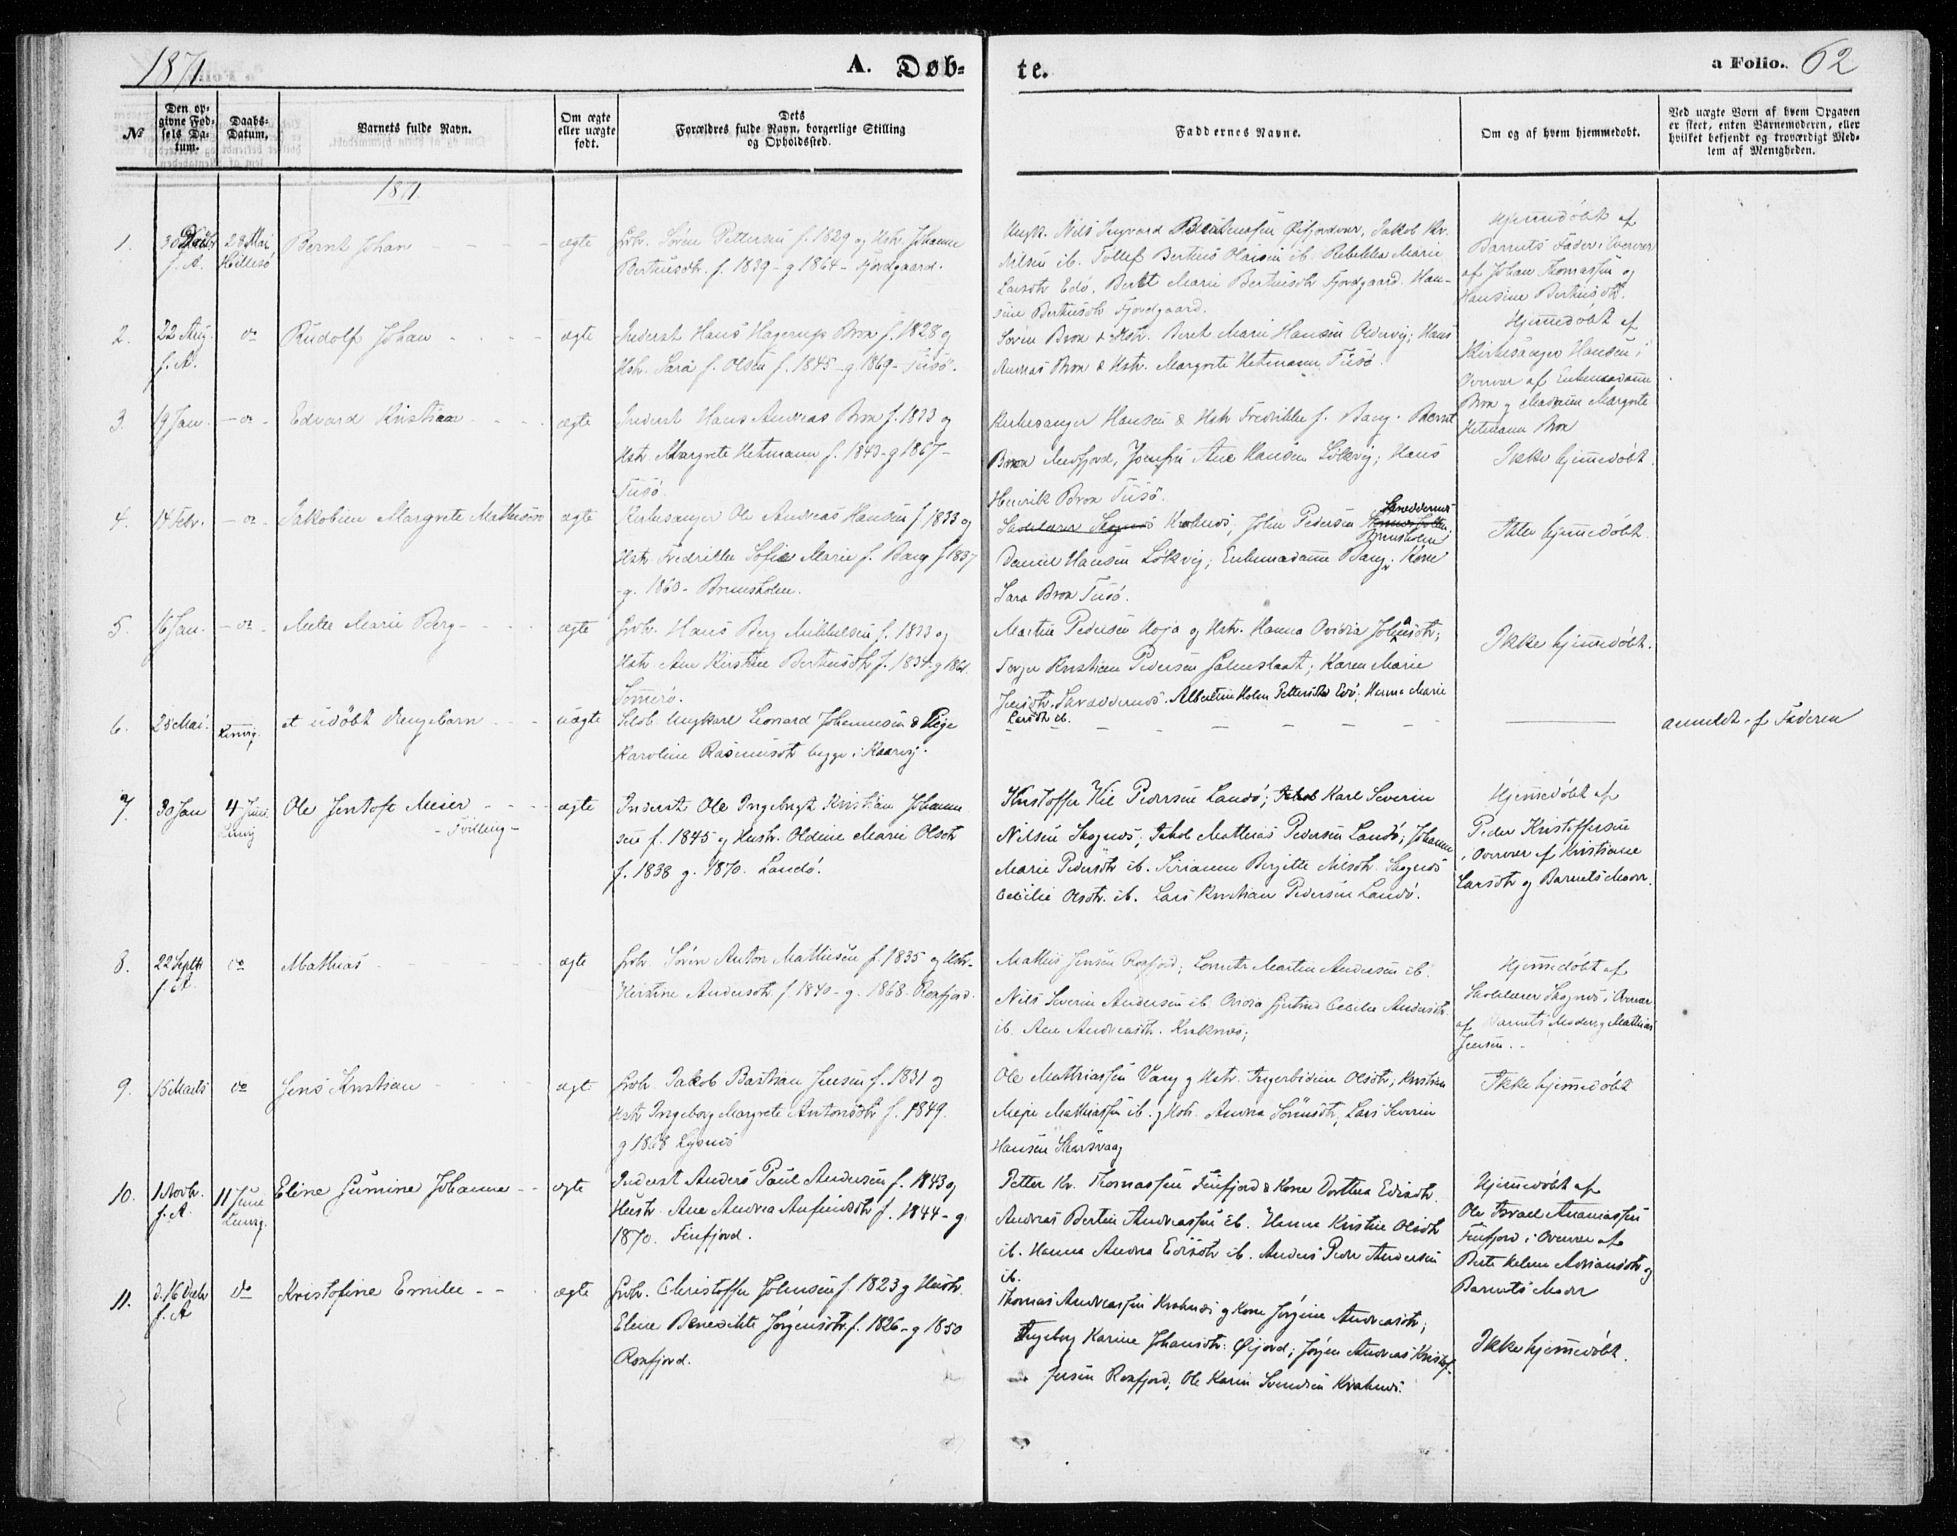 1871
A. Døb-
te.
a Folio. 62
No
Den op-
givne Fød-
sels Da-
tum.
Daabs-
Datum.
Barnets fulde Navn.
Om ægte
eller uægte
født.
Dets
Forældres fulde Navn, borgerlige Stilling
og Opholdssted.
Faddernes Navne.
Om og af hvem hjemmedøbt.
Ved uægte Børn af hvem Opgaven
er skeet, enten Barnemoderen, eller
hvilket bekjendt og troværdigt Med-
lem af Menigheden.
1871.
1.
f. A.
28 Mai
Hillesö
Bernt Johan
ægte
Grbr. Sören Pettersen f. 1829 og Hstr. Johanna
Berthusdtr. f. 1839 - g 1864 - Fjordgaard.
Ungk. Nils Ingvard Øifjordvær, Jakob Kr.
Nilsen ib. Tollef Berthus Olaisen ib. Rebekka Marie
Larsdtr Edö. Berit Marie Berthusdtr Fjordgaard. Han-
sine Berthusdtr Fjordgaard.
Hjemmedöbt af
Barnets Fader i Overvær
af Johan Thomassen og
Hansine Berthusdtr.
2.
22 Aug
f. A.
do
Rudolf Johan
ægte
Inderst Hans Hagerup Brox f. 1828 og
Hstr. Sara f. Olsen f. 1845 - g 1869 - Tusö.
Sören Brox & Hstr. Beret Marie Hansen Oldervig; Hans
Andreas Brox & Hstr. Margrete Hetmann Tusö.
Hjemmedöbt af
Kirkesanger Hansen i
Overvær af Enkemadame
Brox og Madame Margrete
Hetmann Brox
3.
19 Jan.
- do -
Edvard Kristian
ægte
Inderst Hans Andreas Brox f. 1833 og
Hstr. Margrete Hetmann f. 1843 - g 1867 -
Tusö.
Kirkesanger Hansen & Hstr Fredrikke f. Bang. Bernt
Brox Medfjord, Jomfru Ane Hansen Lökvig; Hans
Henrik Brox Tusö.
Ikke hjemmedöbt.
4.
14 Febr.
- do -
Jakobine Margrete Mathisen
ægte
Kirkesanger Ole Andreas Hansen f 1833 og
Hstr. Fredrikke Sofie Marie f. Bang f 1837
- g. 1860 - Brensholm.
Skolelærer Skognes Kraknes; John Pedersen
Brensholm
Daniel Hansen Lökvig; Enkemadame Bang, Kone
Sara Brox Tusö.
Ikke hjemmedöbt.
5.
16 Jan.
- do -
Marie Berg
ægte
Grbr. Hans Berg Mikkelsen f. 1833 og
Hstr Ane Kirstine Berthusdtr f. 1834 - g 1861.
Sommerö.
Martin Pedersen Uoja og Hstr. Hanna Ovidia Johansdtr;
Torger Kristian Pedersen; Karen Marie
Jensdtr. Albertine Holm Pettersdtr Edö. Hanna Marie
Larsdtr ib.
Ikke hjemmedöbt.
6.
28 Mai.
et udöbt Drengebarn
uægte
Ungkarl Leonard Johannesen & Pige
Karoline Rasmusdtr begge i Kaarvig.
anmeldt af Faderen
7.
30 Jan
4 Juni
Lenvig
Ole Jentoft Meier
- Tvilling -
ægte
Inderst Ole Ingebrigt Kristian Johanne-
sen f. 1845 og Hustr. Oldine Marie Olsdtr
f. 1838 g. 1870. Landö.
Kristoffer Kiil Pedersen Landö; Karl Severin
Nilsen Skognes; Jakob Mathias Pedersen Landö; Johanna
Marie Pedersdtr ib. Sirianna Bergitte Nilsdtr. Skognes
Cecilie Olsdtr. ib. Lars Kristian Pedersen Landö.
Hjemmedöbt af
Peder Kristoffersen
i Overvær af Kristiane
Larsdtr og Barnets Moder.
8.
22 Septb
f. A.
do
Mathias
ægte
Grbr. Sören Anton Mathisen f. 1835 og Hstr.
Kirstine Andersdtr. f 1840 - g. 1868. Roxfjord.
Mathis Jensen Roxfjord; Lorents Martin Andersen ib.
Nils Severin Andersen ib Ovidia Gjertrud Cecilie Andersdtr
ib. Ane Andreasdtr. Kraknes;
Hjemmedöbt af
Skolelærer Skognes i Overvær
af Barnets Moder og Mathias
Jensen.
9.
15 Marts
do
Jens Kristian
ægt
Grbr. Jakob Bastian Jensen f. 1831 og
Hstr Ingeborg Margrete Antonsdtr f. 1849.
g 1868 Lysnes
Ole Mathiassen Vang og Hstr. Ingerbidine Olsdtr; Kristian
Mejer Mathiassen ib. og Hstr. Andrea Sörensdtr, Lars Severin
Hansen Skarsvaag
Ikke hjemmedöbt
10.
1 Novbr.
f. A.
11 Juni
Lenvig.
Eline Gumine Johanna
ægte
Inderst Anders Paul Andersen f. 1843 og
Hustr. Ane Andrea Arfindsdtr f. 1844 - g
1870. Finfjord.
Petter Kr. Thomassen Finfjord & Kone Dorthea Edisdtr.
Andreas Bertin Andreassen ib. Hanna Kristine Olsdtr
ib. Hanna Andrea Edisdtr ib. Anders Peder Andersen
ib.
Hjemmedöbt af
Ole Israel Ananiassen
Finfjord i Overvær af
Berte Helene Adriansdtr og
Barnets Moder
11.
d. 16 Decbr
f. A
do
Kristofine Emilie
ægte
Grbr. Christoffer Johnsen f. 1823 og Hustr.
Elene Benedikte Jörgensdtr f. 1826 - g 1850
Roxfjord.
Thomas Andreassen Kraknes og Kone Jörgine Andreasdtr;
Ingeborg Karine Johansdtr. Öijord; Jörgen Andreas Kristof-
fersen Roxfjord; Ole Karin Svendsen Kraknes.
Ikke hjemmedöbt.